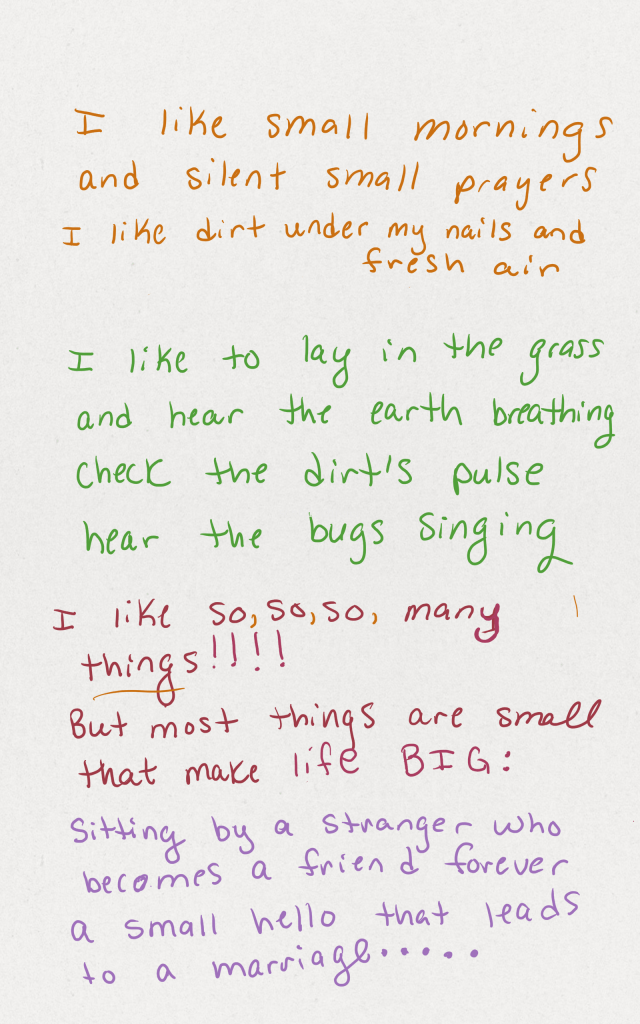 I like small mornings
and silent small prayers
I like dirt under my nails and
fresh air
I like to lay in the grass
and hear the earth breathing
check the dirt's pulse
hear the bugs singing
I like so, so, so, many
things!!!!
But most things are small
that make life BIG:
Sitting by a stranger who
becomes a friend forever
a small hello that leads
to a marriage.....